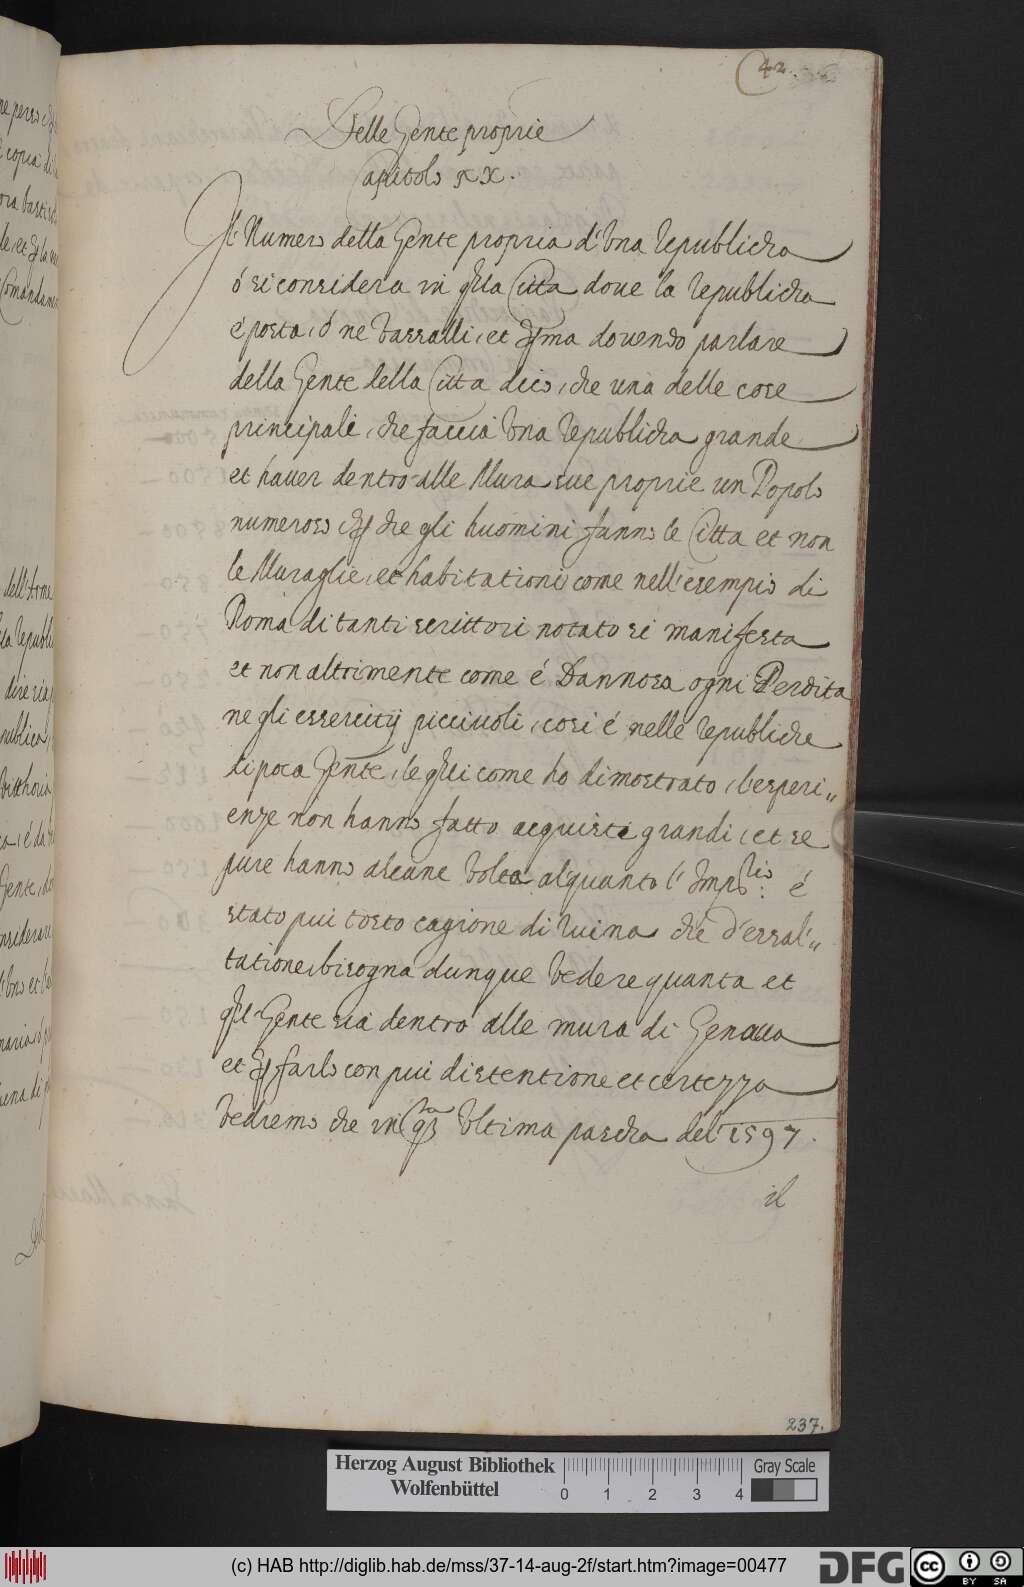 42
Delle Gente proprie
Capitolo XX.
Il Numero della Gente propria d'Una Republicha
ó si considera in q̃lla Citta doue la Republicha
é posta, ó ne Vassalli, et p̃ma douendo parlare
della Gente della Citta dico, che una delle cose
principali, che faccia Una Republicha grande
et hauer dentro alle Mura sue proprie un Popolo
numeroso, p che gli huomini fanno le Citta et non
le Muraglie, et habitationi come nell'esempio di
Roma di tanti scrittori notato si manifesta
et non altrimente come é Dannosa ogni Perdita
negli esserciti picciuoli, cosi é nelle Republiche
di poca Gente, le q̃li come ho dimostrato, l'esperi„
enze non hanno fatto acquisti grandi, et se
pure hanno alcune Volte alquanto l'Imp.rio é
stato piu tosto cagione di Ruina che d'essal„
tatione, bisogna dunque Vedere quanta et
q̃l Gente sia dentro alle mura di Genoua
et p farlo con piu distentione et certezza
Vedremo che in q.ta Ultima pascha del 1597.
il
237.
Herzog August Bibliothek
Wolfenbüttel
0 1 2 3 4
Gray Scale
(c) HAB http://diglib.hab.de/mss/37-14-aug-2f/start.htm?image=00477
DFG
cc BY SA